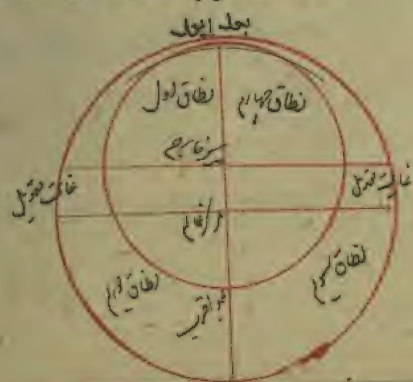 بعد ابعد
نطاق اول
نطاق چهارم
مرکز خارج
غایت تعدیل
غایت تعدیل
مرکز عالم
نطاق دوم
نطاق سوم
بعد اقرب